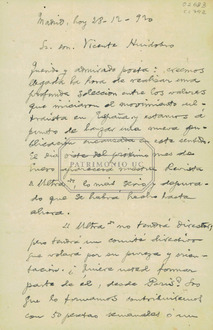 Madrid, hoy 28-12-920
Sr. don Vicente Huidobro
Querido y admirado poeta: creemos
llegada la hora de realizar una
profunda selección entre los valores
que iniciaron el movimiento ul-
traista en España y estamos a
punto de lanzar una nueva pu-
blicación encaminada a este sentido.
del próximo mes de
Enero nuestra Revista
"Ultra", lo más serio y depura-
do que se habrá hecho hasta
ahora.
"Ultra" no tendrá director,
pero tendrá un comité directivo
que velará por su pureza y orien-
tación. ¿Quiere usted formar
parte de él, desde París? Los
que lo formamos contribuimos
con 50 pesetas semanales o un
PATRIMONIO UC